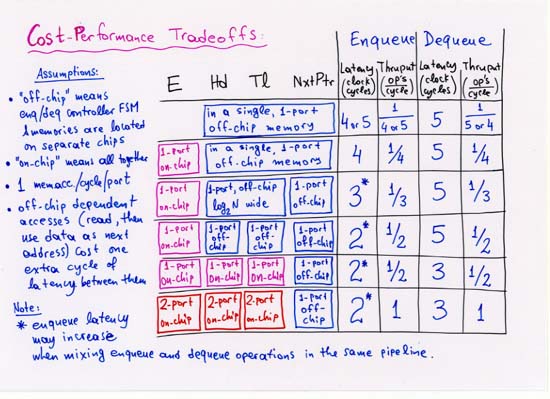 Cost-Performance Tradeoffs:
Enqueue Dequeue
Assumptions:
• "off-chip" means
enq/deq controller FSM
& memories are located
on separate chips
• "on-chip" means all together
• 1 mem acc/cycle/port
• off-chip dependent
accesses (read, then
use data as next
address) cost one
extra cycle of
latency between them
Note:
* enqueue latency
may increase
when mixing enqueue and dequeue operations in the same pipeline.
E Hd Tl NxtPtr Latency (clock cycles) Thruput (op's/cycle) Latency (clock cycles) Thruput (op's/cycle)
in a single, 1-port off-chip memory 4 or 5 1/4 or 5 5 1/5 or 4
1-port on-chip in a single, 1-port off-chip memory 4 1/4 5 1/4
1-port on-chip 1-port, off-chip log2 N wide 1-port off-chip 3* 1/3 5 1/3
1-port on-chip 1-port off-chip 1-port off-chip 1-port off-chip 2* 1/2 5 1/2
1-port on-chip 1-port on-chip 1-port on-chip 1-port off-chip 2* 1/2 3 1/2
2-port on-chip 2-port on-chip 2-port on-chip 1-port off-chip 2* 1 3 1